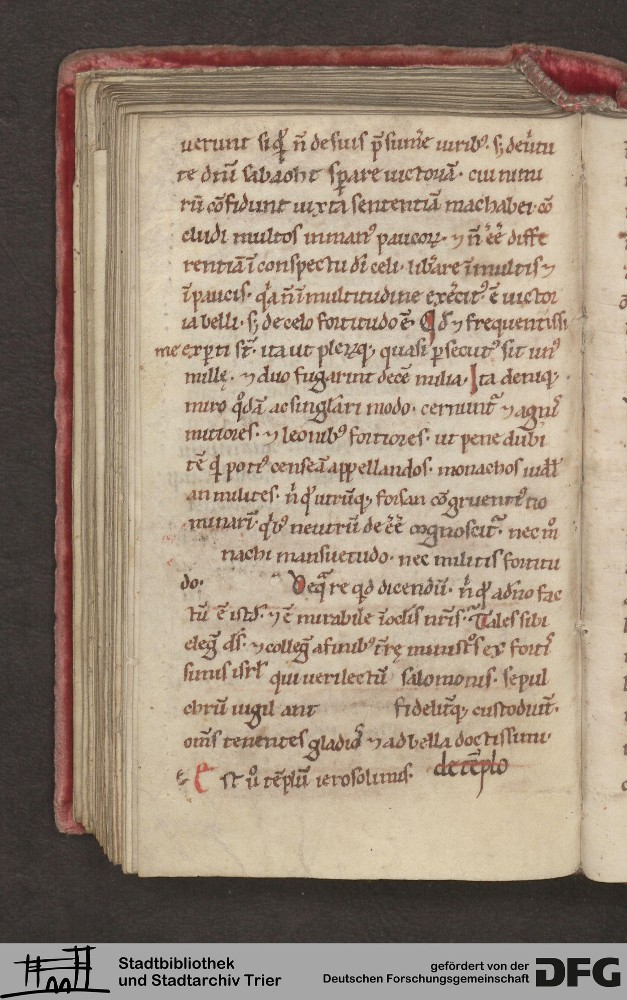 uerunt siq̄ꝫ n̄ de suis p̄sum̄e uiribꝰ. sꝫ deűtu
te dn̄i sabaoht sꝑare uictoriā. cui nimi
rū cōfidunt iuxta sententiā machabei. cō
cludi multos inmanꝰ paucorꝝ. ⁊ n̄ ēē diffe
rentiā ī conspectu dī celi. lib̄are īmultis ⁊
īpaucis. q̄a n̄ ī multitudine ex̄ercitꝰ ē uictor
ia belli. sꝫ de celo fortitudo ē. Qd̄ ⁊ frequentissi
me exꝑti st̄. ita ut plerꝝqꝫ quasi ꝑsecutꝰ sit unꝰ
millę. ⁊ duo fugarint decē milia. Ita deniqꝫ
miro q̊dā ac singlari modo. cernunt̄ ⁊ agnis
mitiores. ⁊ leonibꝰ fortiores. ut pene dubi
tē qͥ potiꝰ censeā appellandos. monachos uidel̄
an milites. n̄ qꝫ utrūqꝫ forsan cōgruentiꝰ no
minari. qͥbꝰ neutrū de ēē cognoscit̄. nec mo
nachi mansuetudo. nec militis fortitu
do. De q̄ re qd̄ dicendū. n̄ qꝫ a dn̄o fac
tū ē istd̄. ⁊ ē mirabile ī oclis nr̄is. Tales sibi
elegit ds̄. ⁊ colleḡ a finibꝰ t̄rę ministͦs ex forti
simis isrl̄ qui uerilectū salomonis. sepul
chrū uigil ant fidelit̄qꝫ custodiūt.
om̄s tenentes gladios ⁊ ad bella doctissimi.
de tēplo
Est ůo tēplū ierosolimis.
Stadtbibliothek
und Stadtarchiv Trier
gefördert von der
Deutschen Forschungsgemeinschaft
DFG